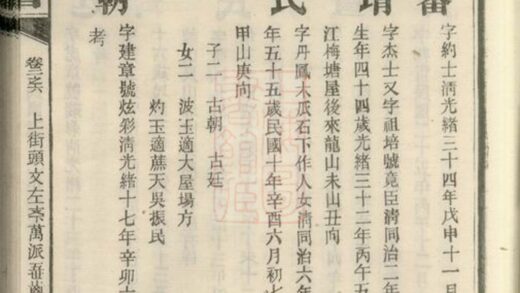 字約士清光緒三十四年戊申十一月
字杰士又字祖培號竟臣清同治二年
生年四十四歲光緒三十二年丙午五
江梅塘屋後來龍山未山丑向
字丹鳳木瓜石下作人女清同治六年
年五十五歲民國十年辛酉六月初七
甲山庚向
子二 古朝 古廷
女二 波玉適大屋場方
灼玉適蕉天吳振民
考
字建章號炫彩清光緒十七年辛卯十
卷三六 上街頭文左 萬派